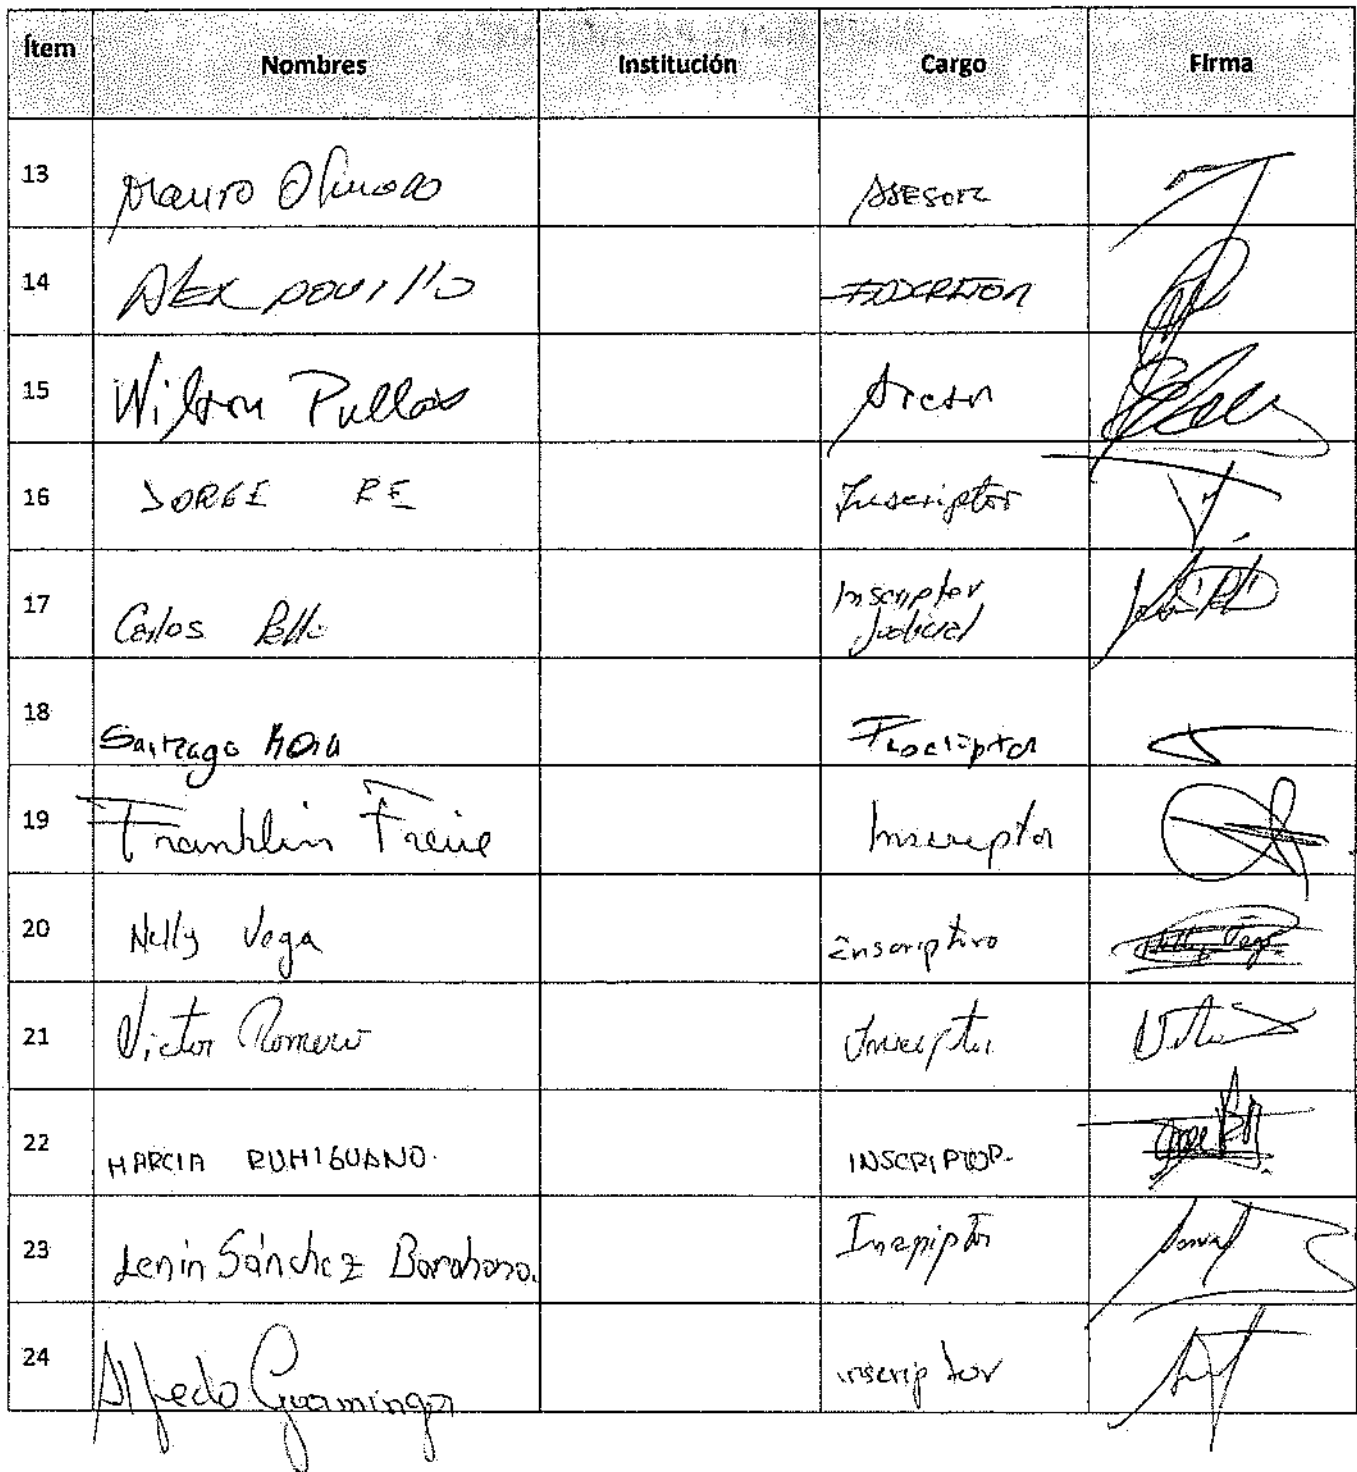 Ítem Nombres Institución Cargo Firma
13 Mauro ASESOR
14 Alex
15 Wilson Pullas Asesor
16 JORGE RE Inscriptor
17 Carlos Inscriptor
Judicial
18 Santiago Inscriptor
19 Franklin Freire Inscriptor
20 Nelly Vega Inscriptivo
21 Victor Romero Inscriptor
22 MARCIA RUMIGUANO. INSCRIPTOR.
23 Lenin Sánchez Barahona. Inscriptor
24 Alfredo Guaminga inscriptor